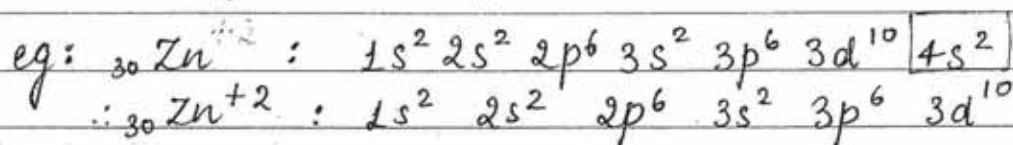 eg: ₃₀Zn : 1s² 2s² 2p⁶ 3s² 3p⁶ 3d¹⁰ 4s²
∴ ₃₀Zn⁺² : 1s² 2s² 2p⁶ 3s² 3p⁶ 3d¹⁰